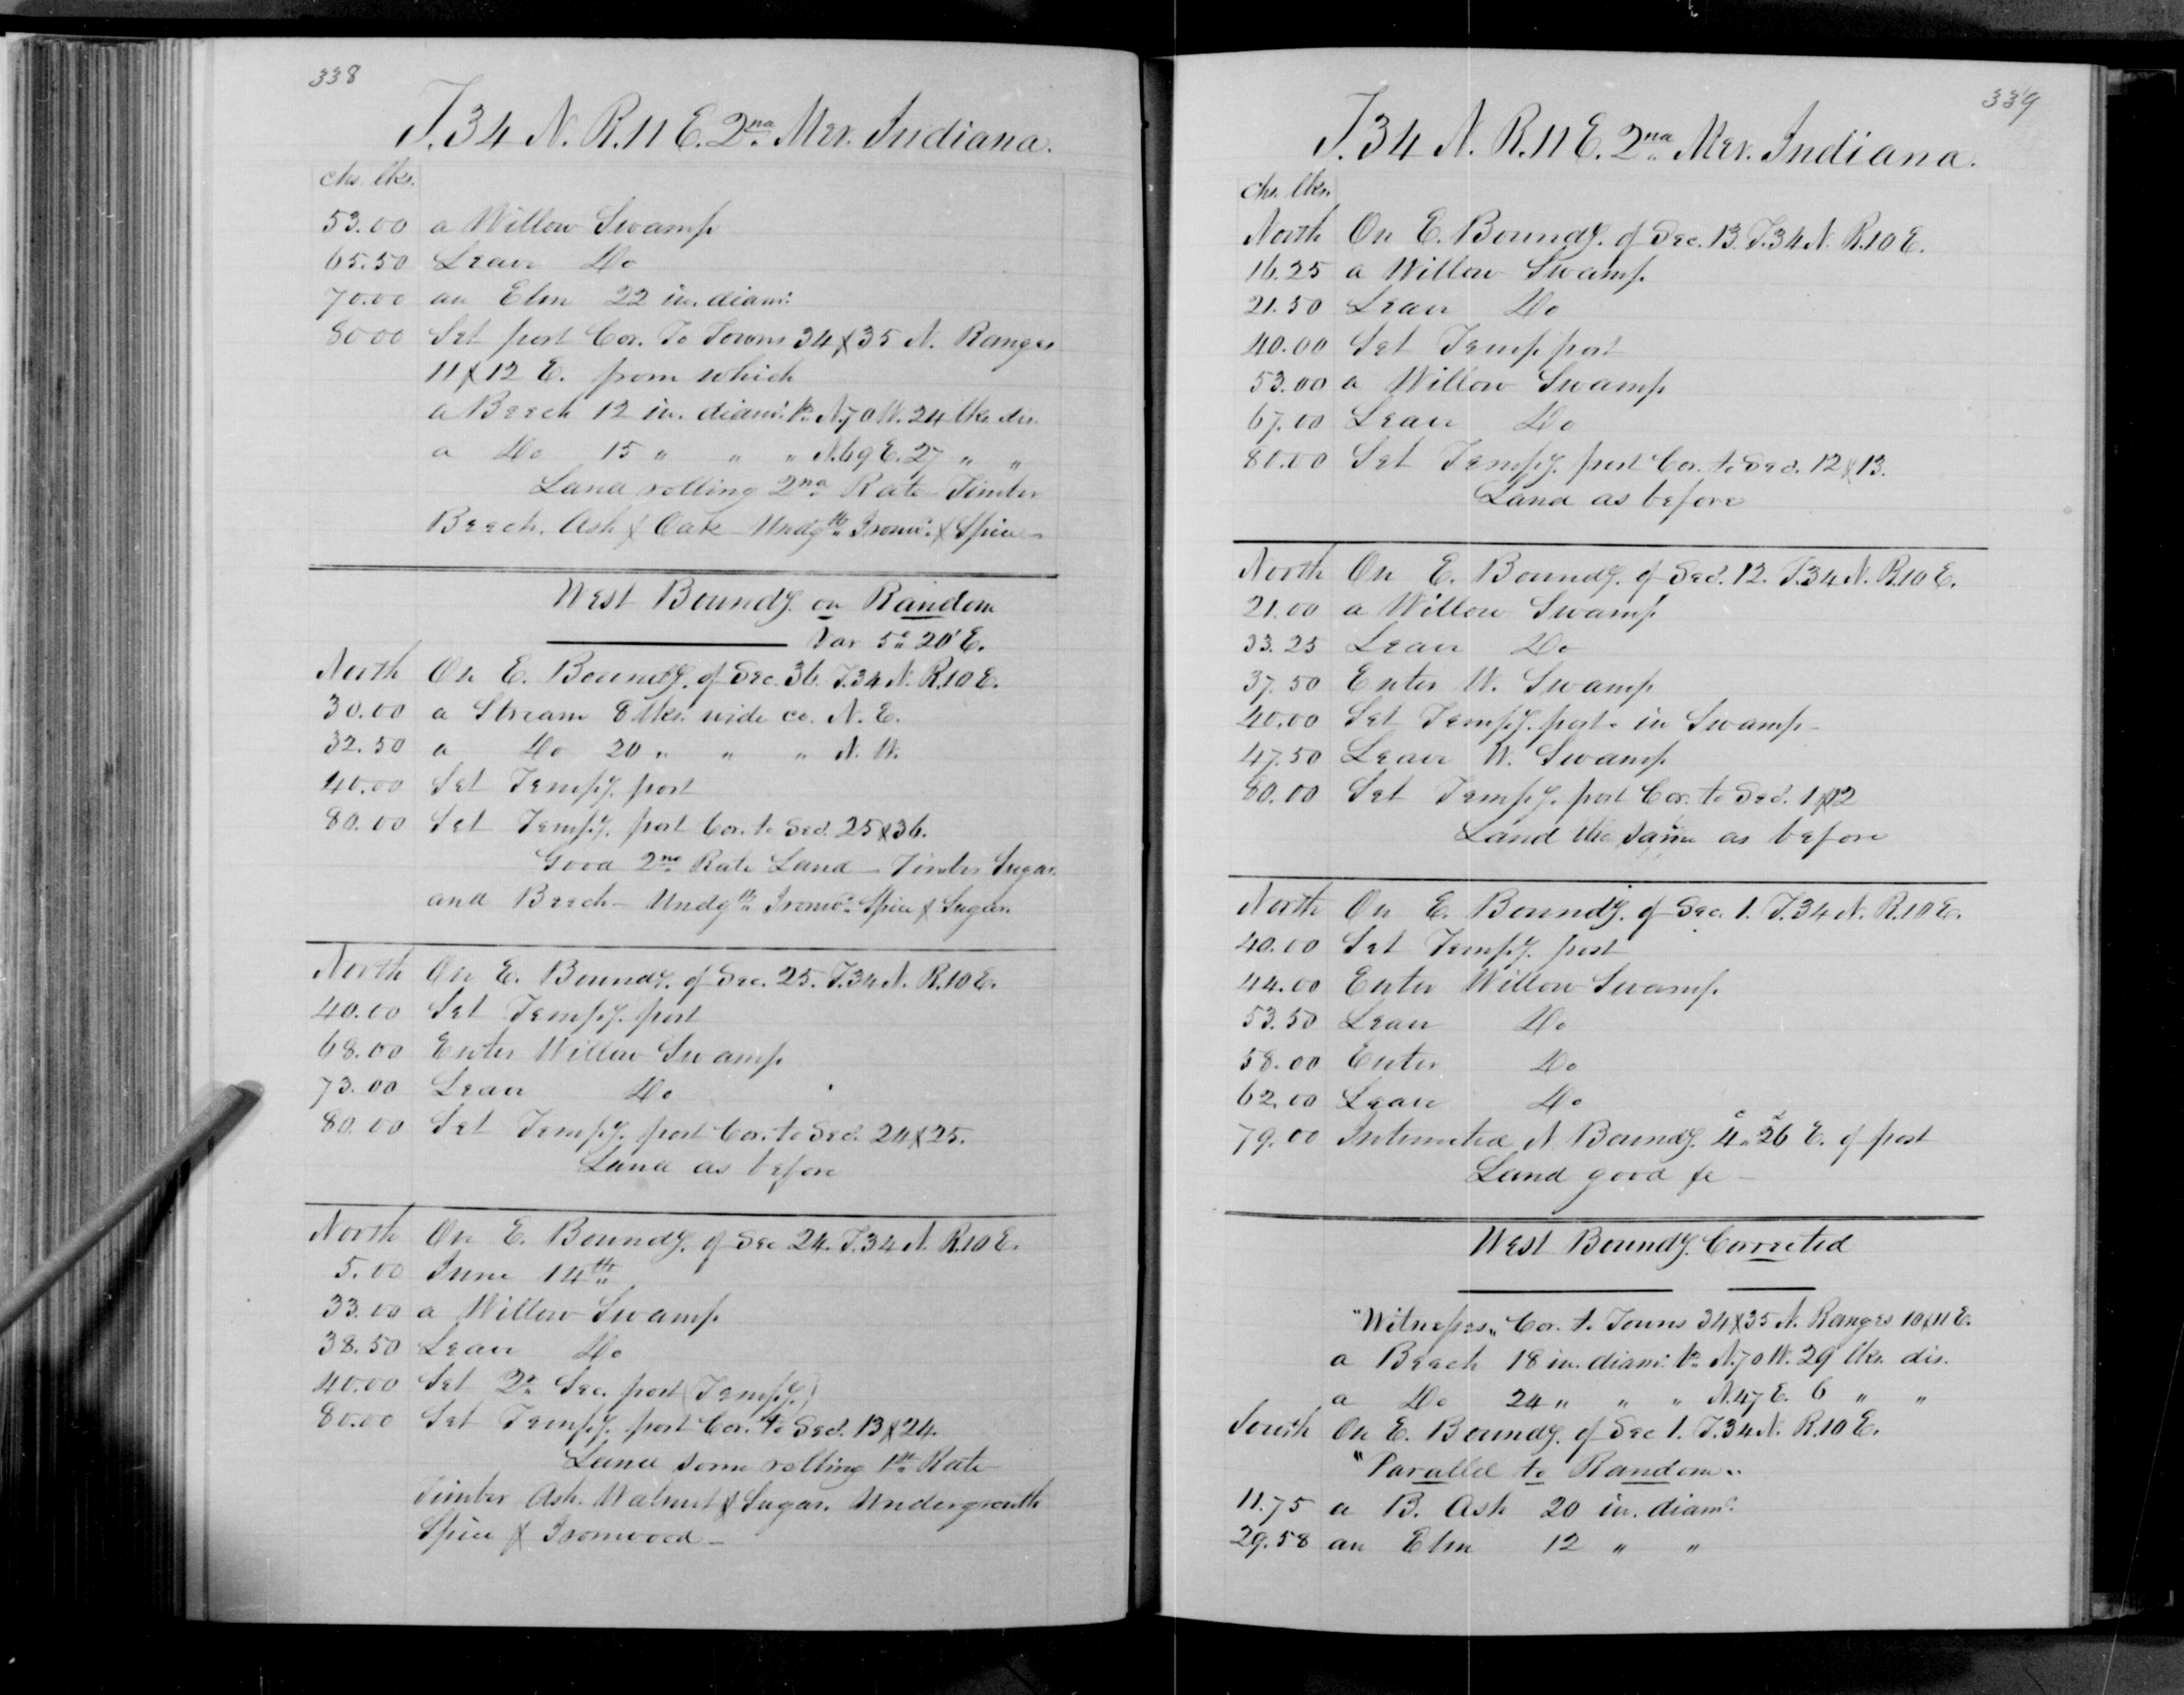 338
T. 34 N. R. 11 E. 2nd Mer. Indiana.
chs. lks.
53.00 a Willow Swamp
65.50 Leave Do
70.00 an Elm 22 in. diamr.
80.00 Set post Cor. To Towns 34 & 35 N. Ranges
11 & 12 E. from which
a Beech 12 in. diamr. brs. N. 70 W. 24 lks. dis.
a Do 15 " " " N. 69 E. 27 " "
Land rolling 2nd Rate – Timber
Beech, Ash & Oak – Undgth. Ironwd. & Spice –
West Boundy. on Random
Var 5° 20' E.
North On E. Boundy. of Sec. 36. T. 34 N. R. 10 E.
30.00 a Stream 8 lks. wide co. N. E.
32.50 a Do 20 " " " N. W.
40.00 Set Tempy. post
80.00 Set Tempy. post Cor. to Secs. 25 & 36.
Good 2nd Rate Land – Timber Sugar
and Beech – Undgth. Ironwd. Spice & Sugar.
North On E. Boundy. of Sec. 25. T. 34 N. R. 10 E.
40.00 Set Tempy. post
68.00 Enter Willow Swamp
73.00 Leave Do
80.00 Set Tempy. post Cor. to Secs. 24 & 25.
Land as before
North On E. Boundy. of Sec 24. T. 34 N. R. 10 E.
5.00 June 14th
33.00 a Willow Swamp
38.50 Leave Do
40.00 Set Qr. Sec. post (Tempy.)
80.00 Set Tempy. post Cor. to Secs. 13 & 24.
Land some rolling 1st Rate
Timber Ash. Walnut & Sugar. Undergrowth
Spice & Ironwood –
339
T. 34 N. R. 11 E. 2nd Mer. Indiana.
chs. lks.
North On E. Boundy. of Sec. 13. T. 34 N. R. 10 E.
16.25 a Willow Swamp.
21.50 Leave Do
40.00 Set Temp. post
53.00 a Willow Swamp
67.00 Leave Do
80.00 Set Tempy. post Cor. to Secs. 12 & 13.
Land as before
North On E. Boundy. of Sec. 12. T. 34 N. R. 10 E.
21.00 a Willow Swamp
33.25 Leave Do
37.50 Enter W. Swamp
40.00 Set Tempy. post in Swamp –
47.50 Leave W. Swamp
80.00 Set Tempy. post Cor. to Secs. 1 & 12
Land the same as before
North On E. Boundy. of Sec. 1. T. 34 N. R. 10 E.
40.00 Set Tempy. post
44.00 Enter Willow Swamp
53.50 Leave Do
58.00 Enter Do
62.00 Leave Do
79.00 Intersected N Boundy. 4c. 26l E. of post
Land good &c –
West Boundy. Corrected
"Witnesses" Cor. to Towns 34 & 35 N. Ranges 10 & 11 E.
a Beech 18 in. diamr. brs. N. 70 W. 29 lks. dis.
a Do 24 " " " N. 47 E. 6 " "
South On E. Boundy. of Sec 1. T. 34 N. R. 10 E.
"Parallel to Random"
11.75 a B. Ash 20 in. diamr.
29.58 an Elm 12 " "